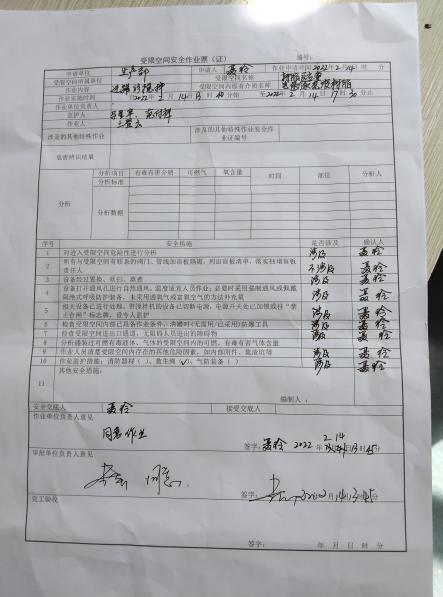 受限空间安全作业票（证） 编号:
申请单位 生产部 申请人 作业申请时间 2022年2月14日 时 分
受限空间所属单位 受限空间名称
作业内容 受限空间内原有介质名称
作业实施时间 2022年2月14日13时40分始 至2022年2月14日17时30分止
作业单位负责人
监护人
作业人
涉及的其他特殊作业 涉及的其他特殊作业安全作业证编号
危害辨识结果
分析 分析项目 有毒有害介质 可燃气 氧含量 时间 部位 分析人
分析标准
分析数据
序号 安全措施 是否涉及 确认人
1 对进入受限空间危险性进行分析 涉及
2 所有与受限空间有联系的阀门、管线加盲板隔离，列出盲板清单，落实抽堵盲板责任人 不涉及
3 设备经过置换、吹扫、蒸煮 涉及
4 设备打开通风孔进行自然通风，温度适宜人员作业；必要时采用强制通风或佩戴隔绝式呼吸防护装备，未采用通氧气或富氧空气的方法补充氧 涉及
5 相关设备已进行处理，带搅拌机的设备已切断电源，电源开关处已加锁或挂“禁止合闸”标志牌，设专人监护 涉及
6 检查受限空间内部已具备作业条件，清罐时（无需用/已采用）防爆工具 涉及
7 检查受限空间进出口通道，无阻碍人员进出的障碍物 涉及
8 分析盛装过可燃有毒液体、气体的受限空间内的可燃、有毒有害气体含量 涉及
9 作业人员清楚受限空间内存在的其他危险因素，如内部附件、集渣坑等 涉及
10 作业监护措施：消防器材（ ）、救生绳（✓）、气防装备（ ） 涉及
11 其他安全措施:
编制人：
安全交底人 接受交底人
作业单位负责人意见
同意作业
签字: 2022年2 14 13时45分
审批单位负责人意见
同意.
签字: 2022 2 14 13 45
完工验收
签字: 年 月 日 时 分